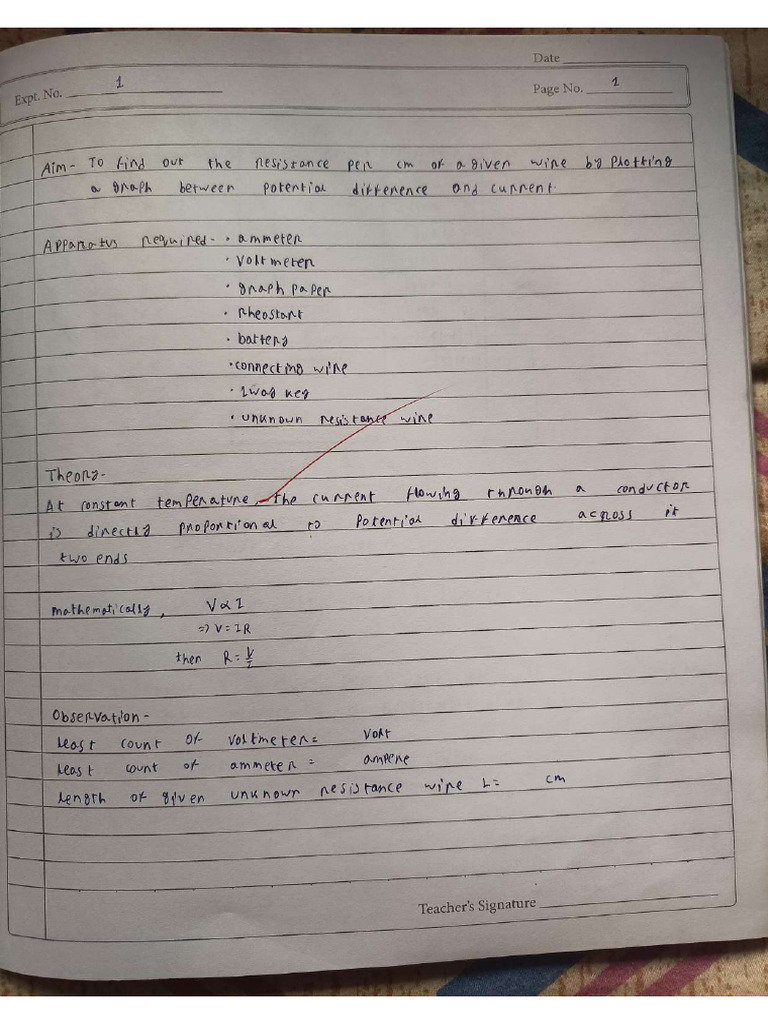 Date
Expt. No. 1
Page No. 1
Aim- To find out the resistance per cm of a given wire by plotting
a graph between potential difference and current.
Apparatus required- • ammeter
• voltmeter
• graph paper
• rheostart
• battery
• connecting wire
• 1 way key
• unknown resistance wire
Theory-
At constant temperature, the current flowing through a conductor
is directly proportional to potential difference across it
two ends
mathematically, V∝I
=> V=IR
then R=V/I
Observation-
least count of voltmeter= volt
least count of ammeter= ampere
length of given unknown resistance wire L= cm
Teacher's Signature